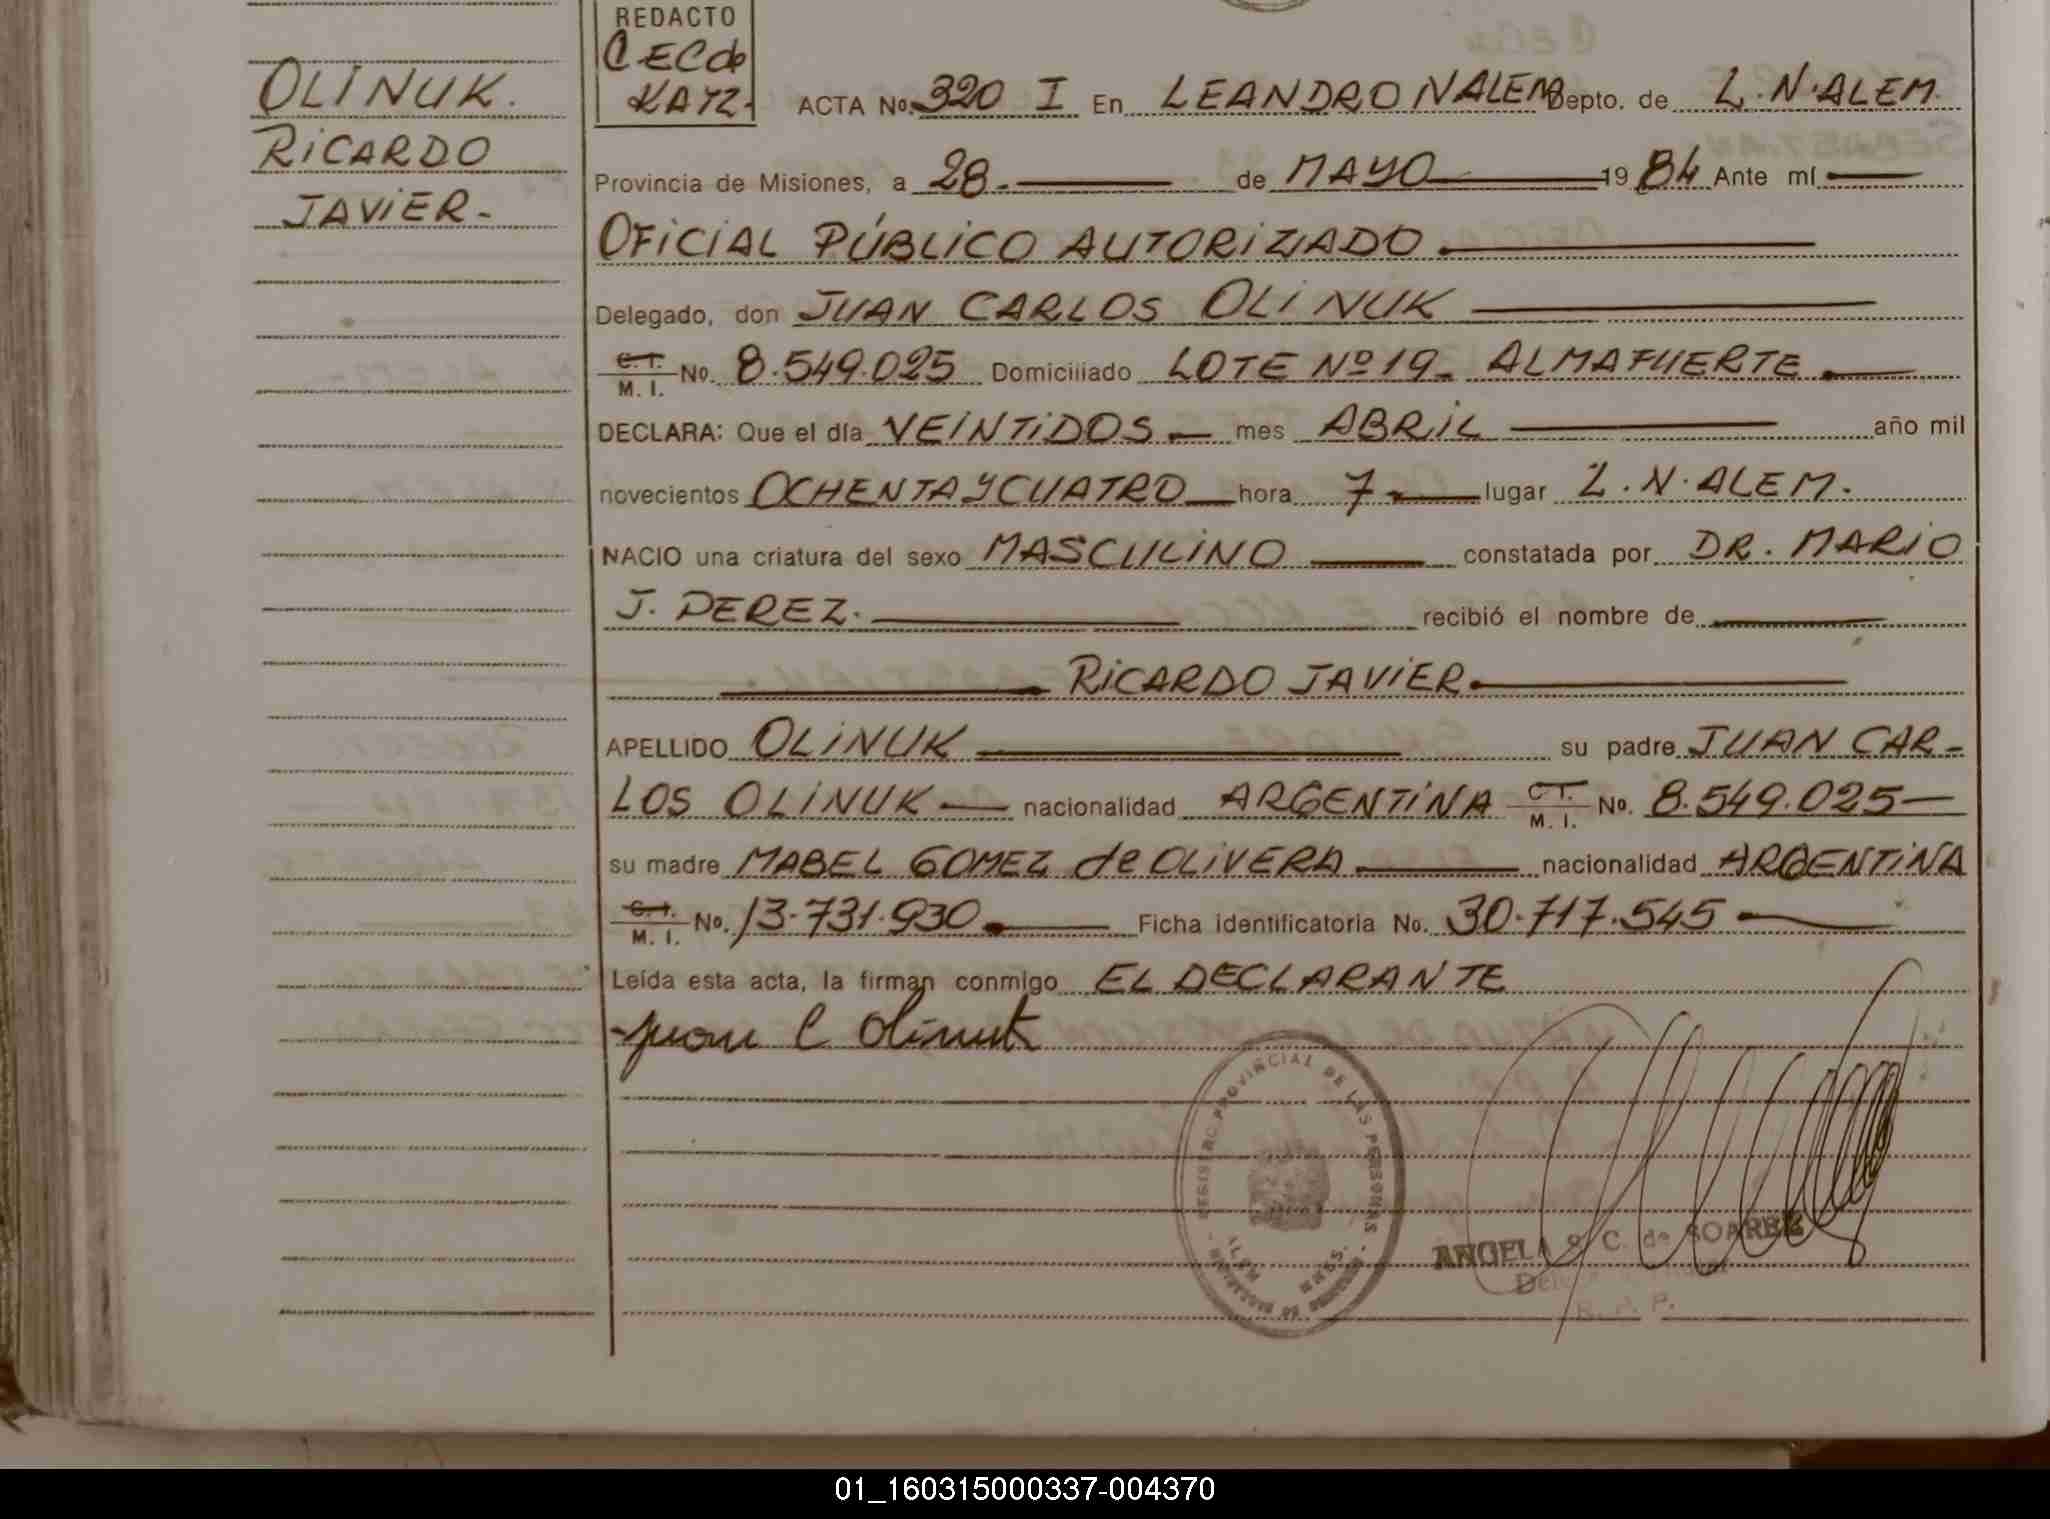 OLINUK.
RICARDO
JAVIER-
REDACTO
CECde
KAYZ.
ACTA No. 320 I En LEANDRO N ALEM Depto. de L.N.ALEM.
Provincia de Misiones, a 28.- de MAYO 1984 Ante mí
OFICIAL PÚBLICO AUTORIZADO.
Delegado, don JUAN CARLOS OLINUK
C.I. M. I. No. 8.549.025 Domiciliado LOTE Nº 19- ALMAFUERTE.
DECLARA: Que el día VEINTIDOS - mes ABRIL año mil
novecientos OCHENTA Y CUATRO hora 7 lugar L.N.ALEM.
NACIO una criatura del sexo MASCULINO constatada por DR. MARIO
J. PEREZ. recibió el nombre de
RICARDO JAVIER.
APELLIDO OLINUK su padre JUAN CAR-
LOS OLINUK nacionalidad ARGENTINA C.I. M. I. No. 8.549.025
su madre MABEL GOMEZ de OLIVERA nacionalidad ARGENTINA
C.I. M. I. No. 13.731.930. Ficha identificatoria No. 30.717.545
Leída esta acta, la firman conmigo EL DECLARANTE
Juan C Olinuk
REGISTRO PROVINCIAL DE LAS PERSONAS
ALEM MNES.
ANGELA C. de SOAREZ
R. P. P.
01_160315000337-004370